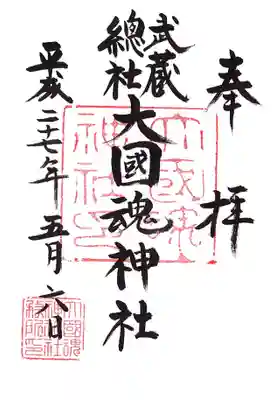 奉拝
武蔵
總社
大國魂神社
平成二十七年 五月 六日
大國魂
神社印